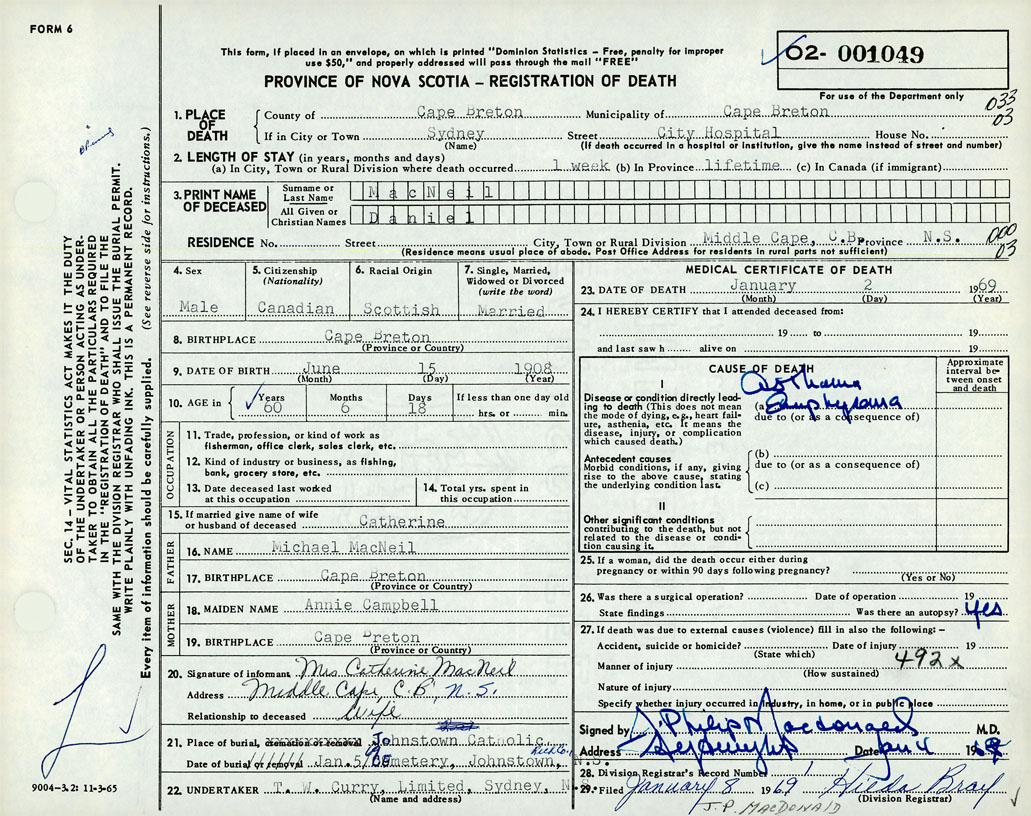 FORM 6
This form, if placed in an envelope, on which is printed "Dominion Statistics - Free, penalty for improper
use $50," and properly addressed will pass through the mail "FREE"
PROVINCE OF NOVA SCOTIA - REGISTRATION OF DEATH
02- 001049
For use of the Department only
033
03
1. PLACE OF DEATH
County of Cape Breton Municipality of Cape Breton
If in City or Town Sydney Street City Hospital House No.
(Name) (If death occurred in a hospital or institution, give the name instead of street and number)
2. LENGTH OF STAY (in years, months and days)
(a) In City, Town or Rural Division where death occurred 1 week (b) In Province lifetime (c) In Canada (if immigrant)
3. PRINT NAME OF DECEASED
Surname or Last Name MacNeil
All Given or Christian Names Daniel
RESIDENCE No. Street City, Town or Rural Division Middle Cape, C.B. Province N.S.
000
03
(Residence means usual place of abode. Post Office Address for residents in rural parts not sufficient)
4. Sex
Male
5. Citizenship
(Nationality)
Canadian
6. Racial Origin
Scottish
7. Single, Married,
Widowed or Divorced
(write the word)
Married
8. BIRTHPLACE Cape Breton
(Province or Country)
9. DATE OF BIRTH June 15 1908
(Month) (Day) (Year)
10. AGE in Years 60 Months 6 Days 18 If less than one day old
hrs. or min.
OCCUPATION
11. Trade, profession, or kind of work as
fisherman, office clerk, sales clerk, etc.
12. Kind of industry or business, as fishing,
bank, grocery store, etc.
13. Date deceased last worked
at this occupation
14. Total yrs. spent in
this occupation
15. If married give name of wife
or husband of deceased Catherine
FATHER
16. NAME Michael MacNeil
17. BIRTHPLACE Cape Breton
(Province or Country)
MOTHER
18. MAIDEN NAME Annie Campbell
19. BIRTHPLACE Cape Breton
(Province or Country)
20. Signature of informant Mrs Catherine MacNeil
Address Middle Cape, C.B, N.S.
Relationship to deceased Wife
21. Place of burial, cremation or removal Johnstown Catholic
Date of burial or removal Jan. 5/69 Cemetery, Johnstown, N.S.
22. UNDERTAKER T. W. Curry, Limited, Sydney, N.S.
(Name and address)
MEDICAL CERTIFICATE OF DEATH
23. DATE OF DEATH January 2 1969
(Month) (Day) (Year)
24. I HEREBY CERTIFY that I attended deceased from:
19 to 19
and last saw h alive on 19
CAUSE OF DEATH
Approximate
interval between onset
and death
I
Disease or condition directly leading to death (This does not
mean the mode of dying, e.g., heart failure, asthenia, etc. It means the
disease, injury, or complication
which caused death.)
Asthma
(a) Emphysema
due to (or as a consequence of)
Antecedent causes
Morbid conditions, if any, giving
rise to the above cause, stating
the underlying condition last.
(b)
due to (or as a consequence of)
(c)
II
Other significant conditions
contributing to the death, but not
related to the disease or condition causing it.
25. If a woman, did the death occur either during
pregnancy or within 90 days following pregnancy?
(Yes or No)
26. Was there a surgical operation? Date of operation 19
State findings Was there an autopsy? yes
27. If death was due to external causes (violence) fill in also the following: -
Accident, suicide or homicide? Date of injury 19
(State which) 492x
Manner of injury
(How sustained)
Nature of injury
Specify whether injury occurred in industry, in home, or in public place
Signed by J. Philip Macdonald M.D.
Address Date Jan 4 1969
28. Division Registrar's Record Number
29. Filed January 8 1969 Hilda Bray
(Division Registrar)
J.P. MACDONALD
SEC. 14 - VITAL STATISTICS ACT MAKES IT THE DUTY
OF THE UNDERTAKER OR PERSON ACTING AS UNDER-
TAKER TO OBTAIN ALL THE PARTICULARS REQUIRED
IN THE "REGISTRATION OF DEATH" AND TO FILE THE
SAME WITH THE DIVISION REGISTRAR WHO SHALL ISSUE THE BURIAL PERMIT.
WRITE PLAINLY WITH UNFADING INK. THIS IS A PERMANENT RECORD.
Every item of information should be carefully supplied. (See reverse side for instructions.)
9004-3.2: 11-3-65